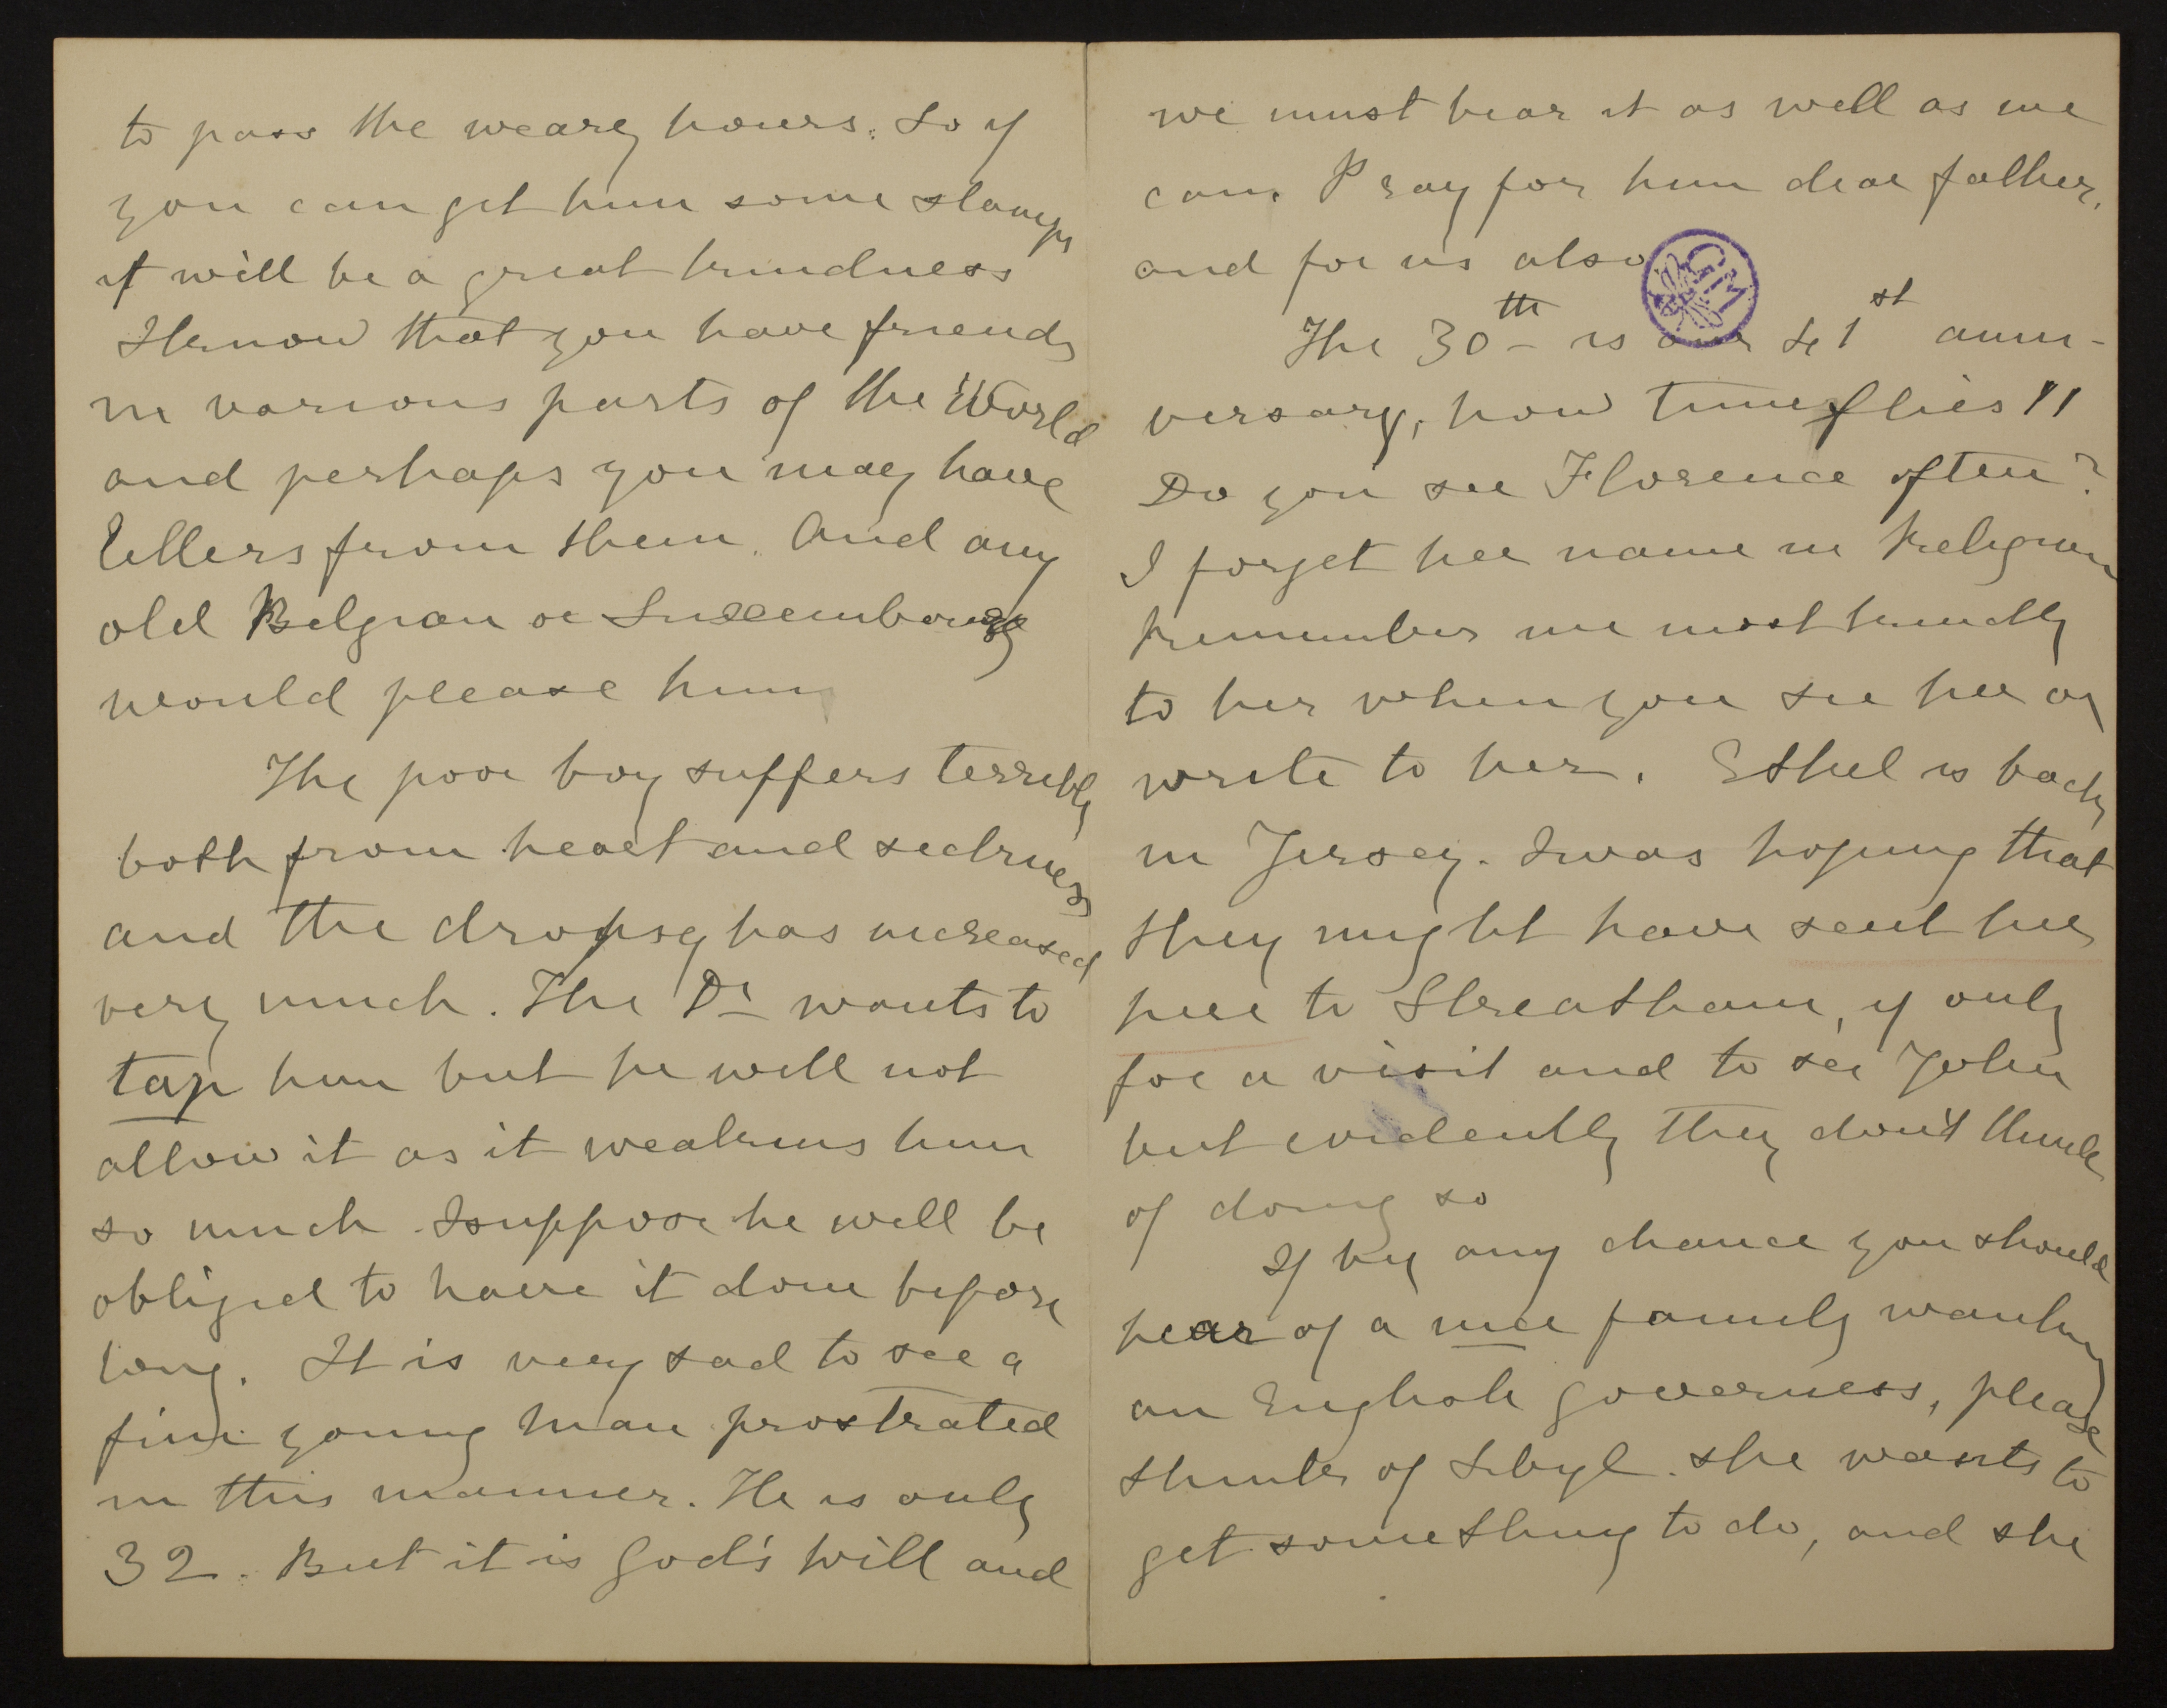 to pass the weary hours. So if
you can get him some stamps
it will be a great kindness
I know that you have friends
in various parts of the World
and perhaps you may have
letters from them. And any
old Belgian or Luxembourg
would please him
The poor boy suffers terribly
both from heart and sickness
and the dropsy has increased
very much. The Dr wants to
tap him but he will not
allow it as it weakens him
so much. I suppose he will be
obliged to have it done before
long. It is very sad to see a
fine young man prostrated
in this manner. He is only
32. But it is God's Will and
we must bear it as well as we
can. Pray for him dear father,
and for us also.
GM
The 30th is our 41st anni-
versary, how time flies!!
Do you see Florence often?
I forget her name in Religion
Remember me most kindly
to her when you see her or
write to her. Ethel is back
in Jersey. I was hoping that
they might have sent her
here to Streatham, if only
for a visit and to see John
but evidently they don't think
of doing so
If by any chance you should
hear of a nice family wanting
an English governess, please
think of Sibyl. she wants to
get something to do, and she